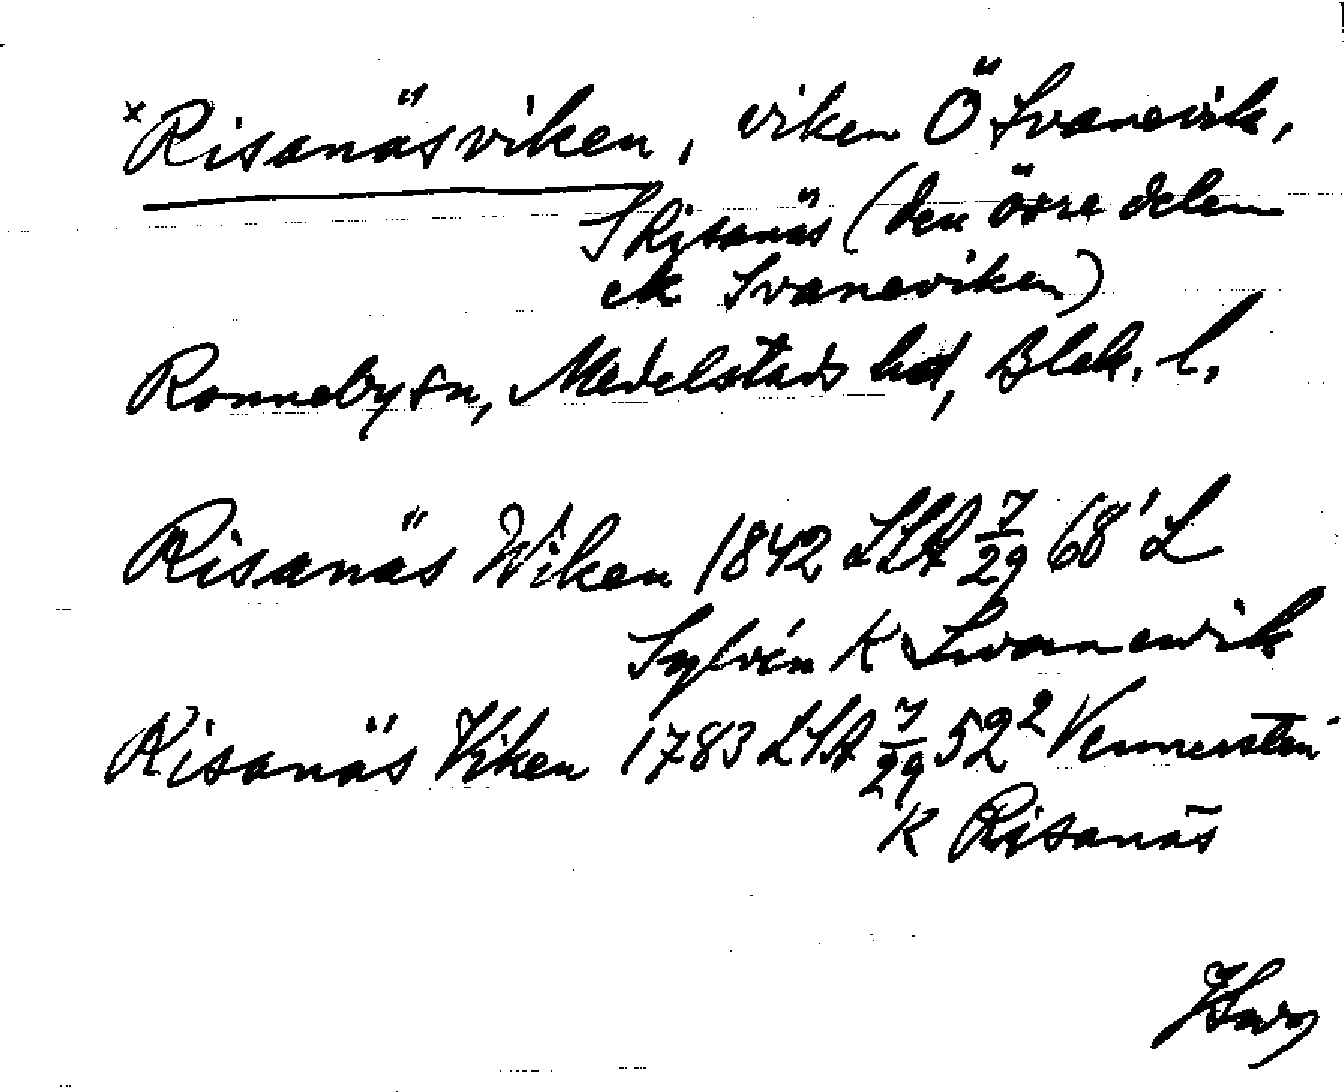 ×Risanäsviken, viken Ö Svanevik,
S Risanäs (den övre delen
ek Svaneviken)
Ronneby sn, Medelstads hd, Blek. l.
Risanäs Wiken 1842 LSA 7/29 68' L
Sylvén K Svanewik
Risanäs Viken 1783 LSA 7/29 52² Vennersten
K Risanäs